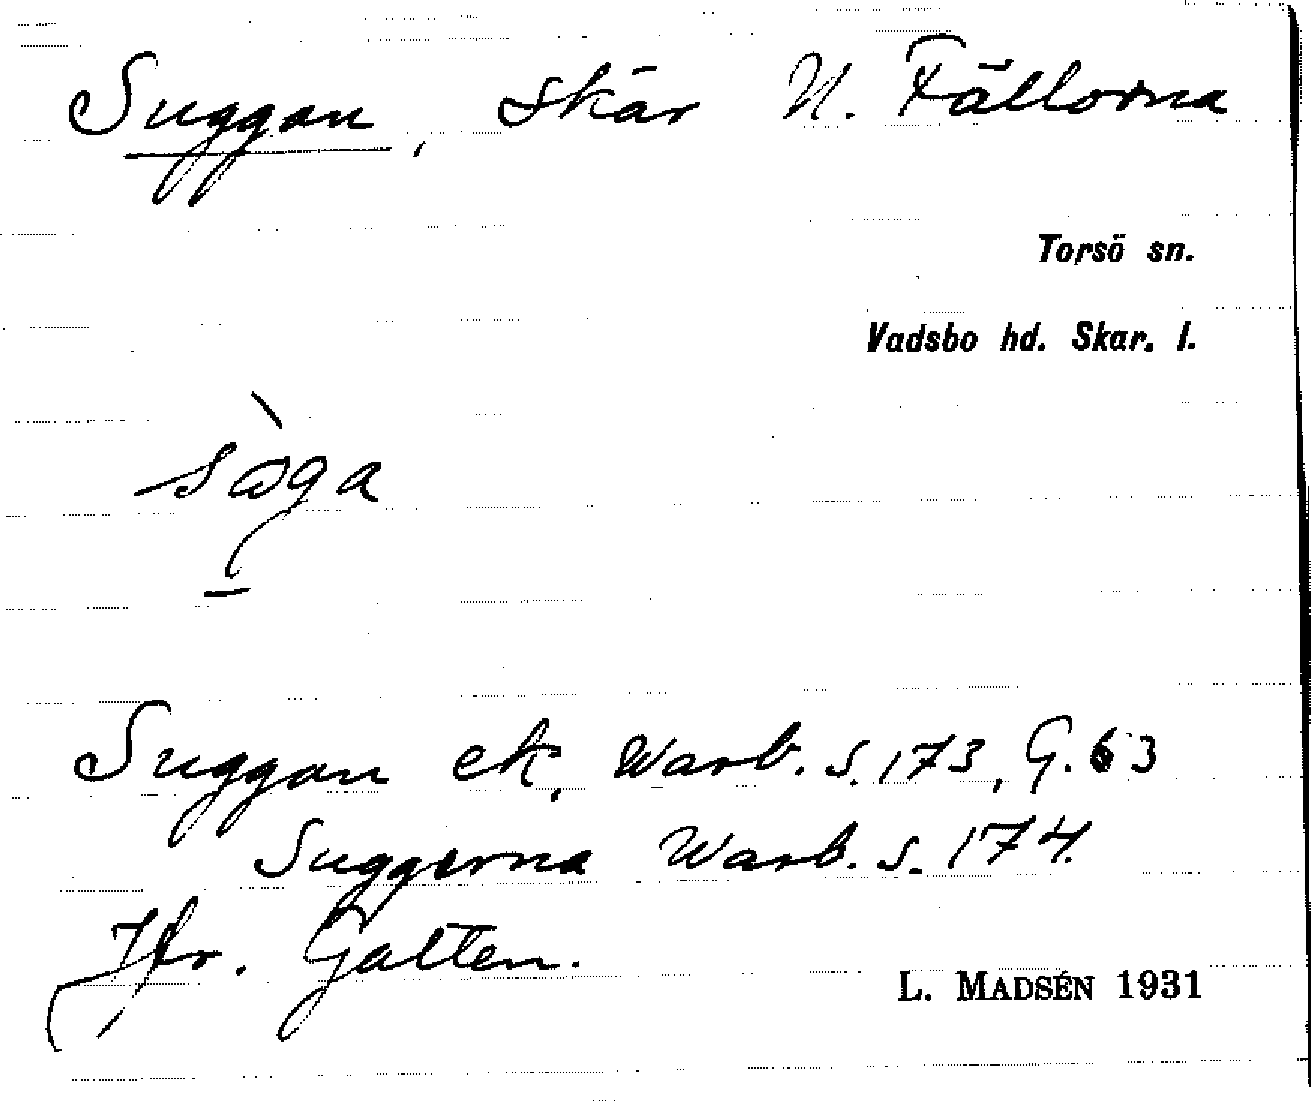 Suggan, skär N. Fällorna
Torsö sn.
Vadsbo hd. Skar. l.
sɷ̀ga
Suggan ek, Warb. s. 173, G. 63
Suggorna Warb. s. 174.
Jfr. Galten.
L. MADSÉN 1931